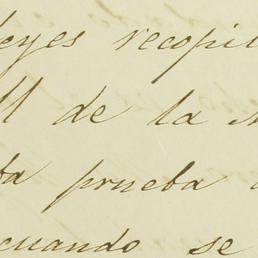 leyes recopil
ll de la
ta prueba
cuando se